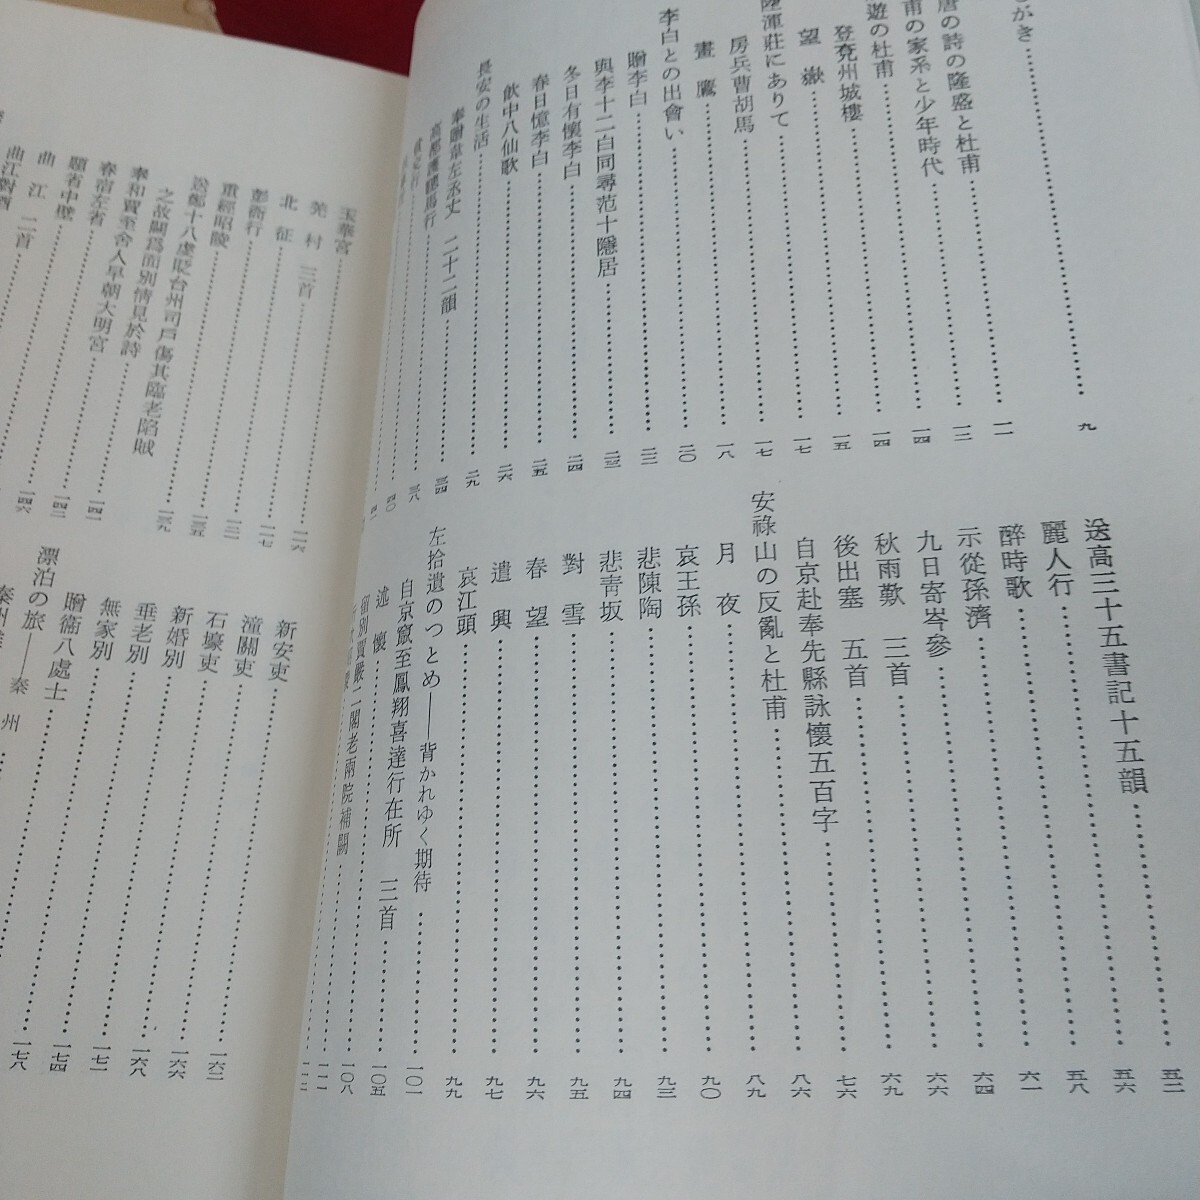 しがき 九
唐の詩の隆盛と杜甫 一一
甫の家系と少年時代 一三
遊の杜甫 一四
登兗州城樓 一四
望嶽 一五
陸渾莊にありて 一七
房兵曹胡馬 一七
畫鷹 一八
李白との出會い 二〇
贈李白 二二
與李十二白同尋范十隱居 二三
冬日有懷李白 二四
春日憶李白 二五
飮中八仙歌 二六
長安の生活 二九
奉贈韋左丞丈 二十二韻 三四
高都護驄馬行 三八
貧交行 四〇
四一
送高三十五書記十五韻 五二
麗人行 五六
醉時歌 五八
示從孫濟 六一
九日寄岑參 六四
秋雨歎 三首 六六
後出塞 五首 六九
自京赴奉先縣詠懷五百字 七六
安祿山の反亂と杜甫 八六
月夜 八九
哀王孫 九〇
悲陳陶 九三
悲靑坂 九四
對雪 九五
春望 九六
遣興 九七
哀江頭 九九
左拾遺のつとめ――背かれゆく期待 一〇一
自京竄至鳳翔喜達行在所 三首 一〇五
述懷 一〇八
留別賈嚴二閣老兩院補闕 一一一
一一二
玉華宮
羌村 三首 一一六
北征 一一七
彭衙行 一三一
重經昭陵 一三五
送鄭十八虔貶台州司戶傷其臨老陷賊
之故闕爲面別情見於詩 一三九
奉和賈至舍人早朝大明宮 一四一
春宿左省 一四三
題省中壁 一四六
曲江 二首
曲江對酒
新安吏
潼關吏
石壕吏 一六二
新婚別 一六六
垂老別 一六八
無家別 一七一
贈衞八處士 一七四
漂泊の旅――秦州 一七八
秦州雜